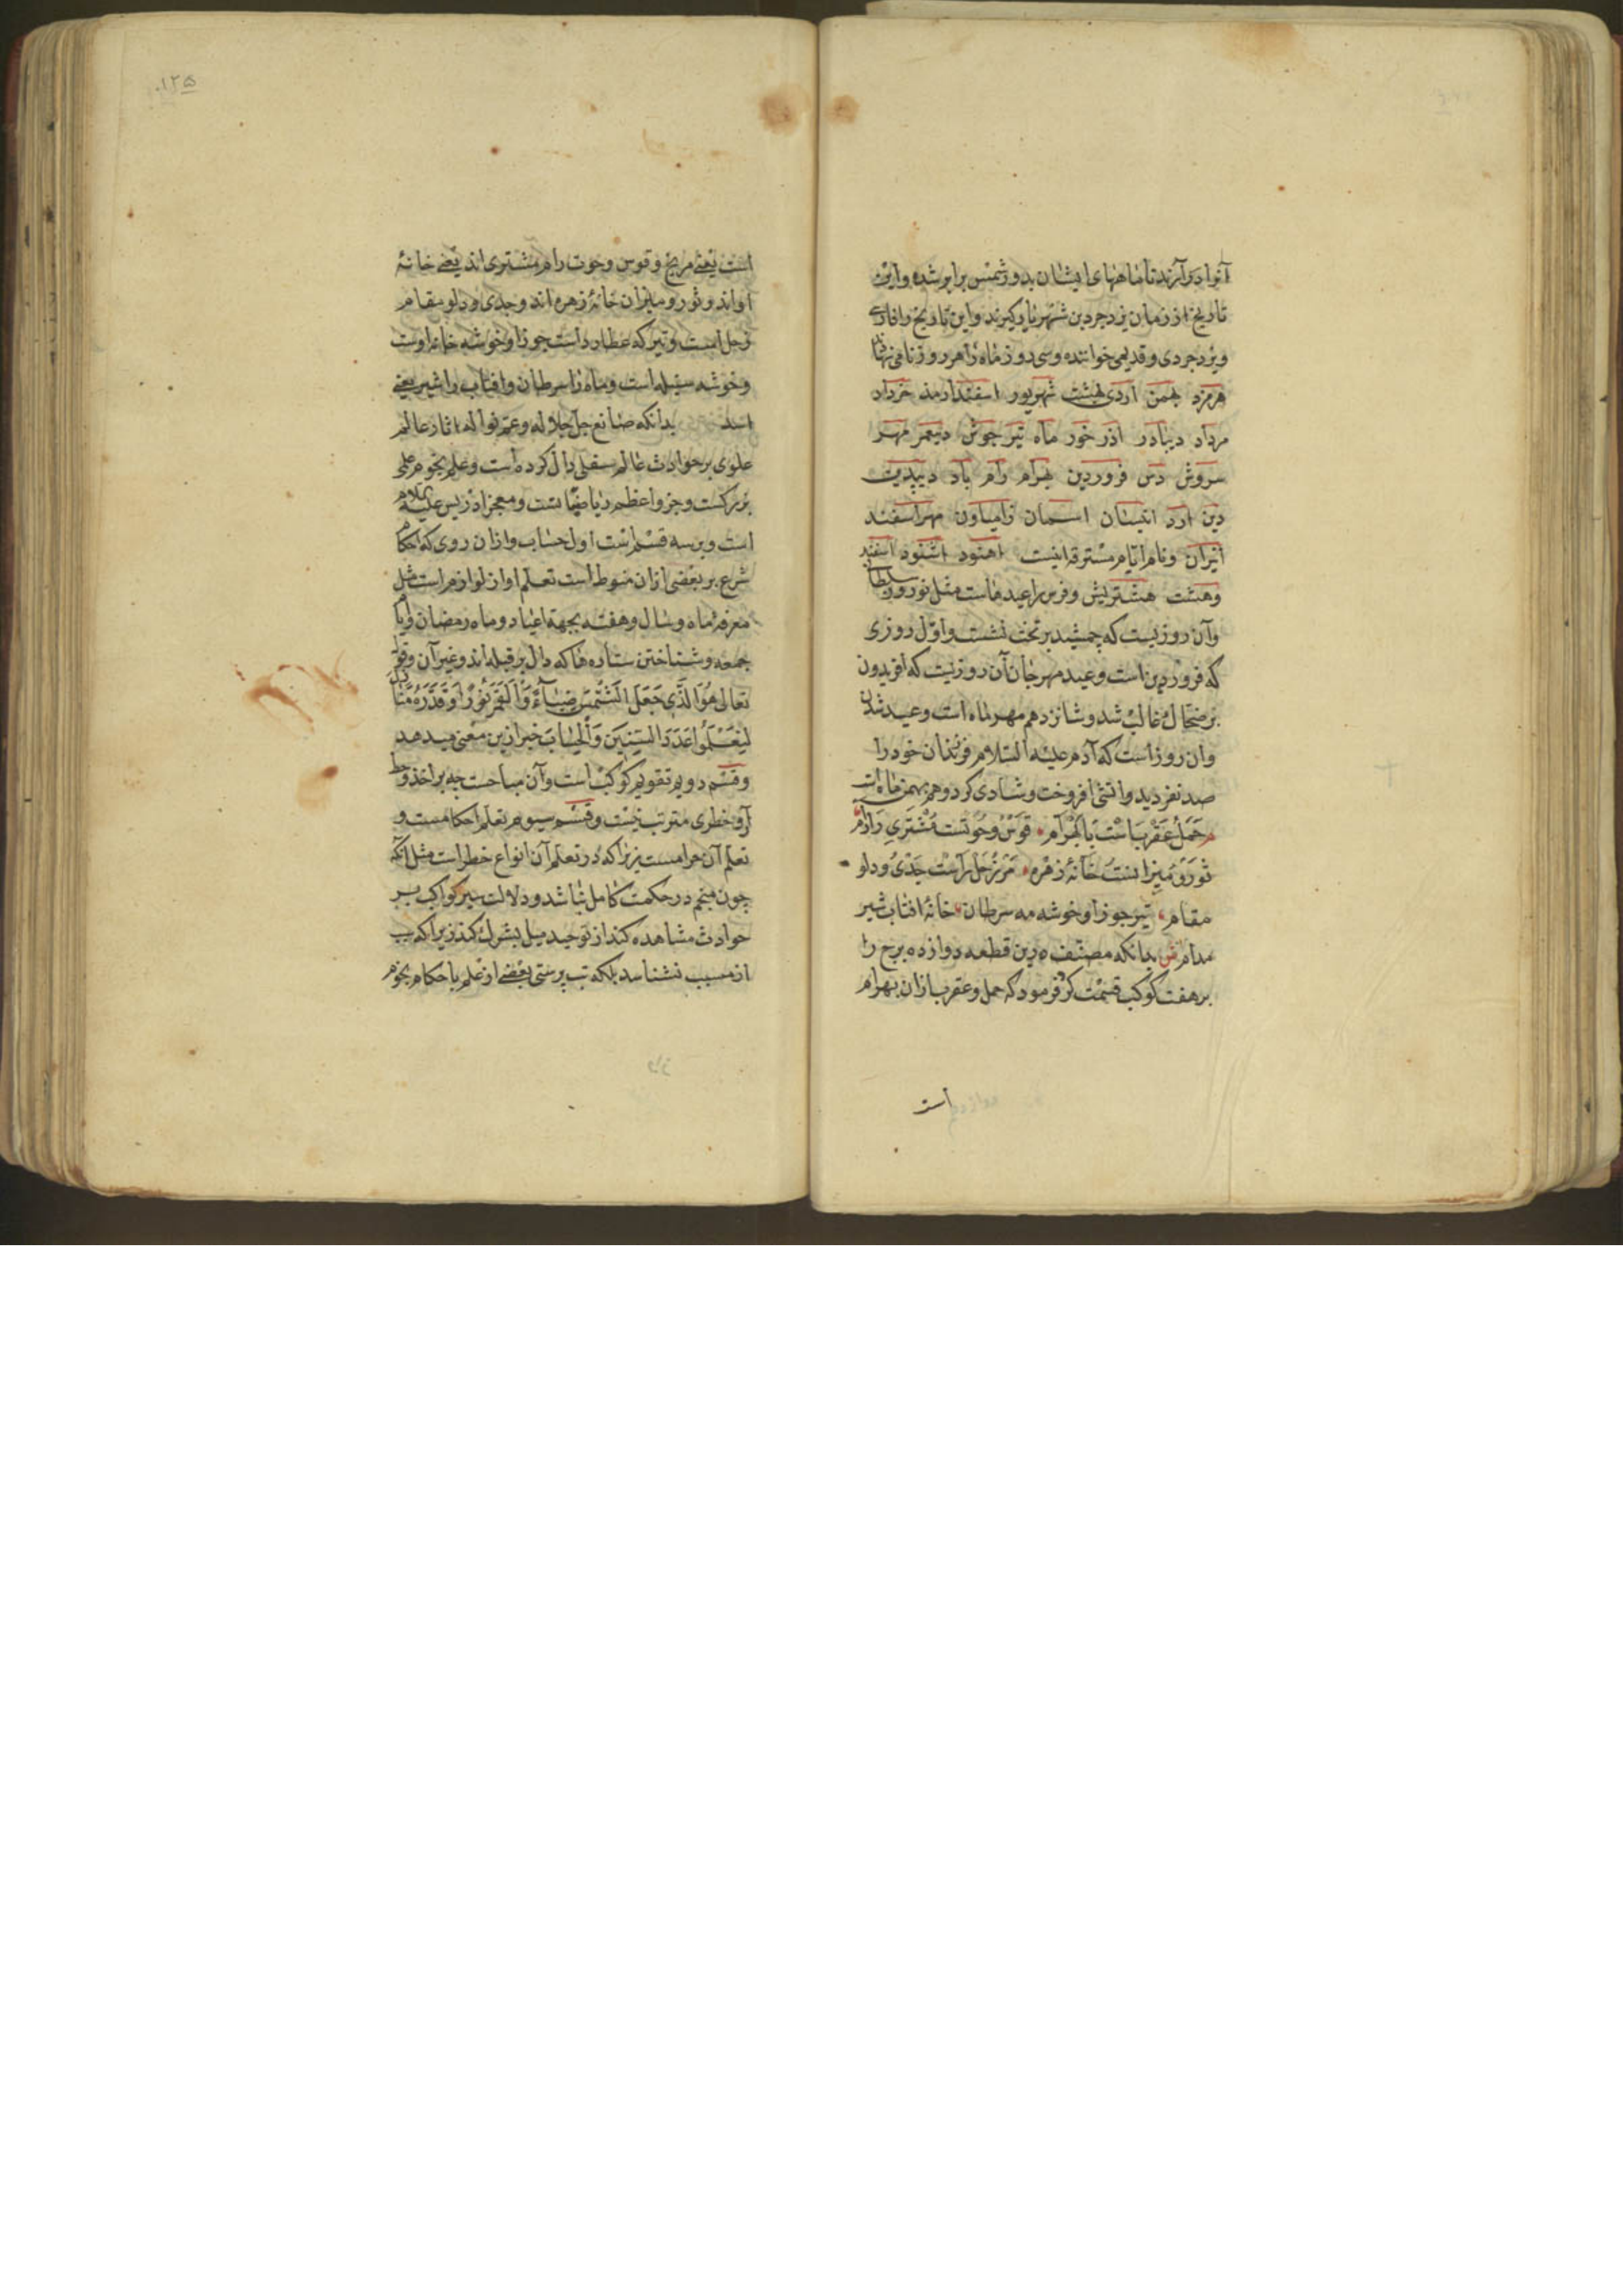 آنرا در آرند تا ماههای ایشان بدور شمس برابر شده و این
تاریخ از زمان یزدجرد بن شهریار گیرند و این تاریخ را فارسی
و یزدجردی و قدیمی خوانده و سی روز ماه را هر روز نامی نهاده
هرمزد بهمن اردی بهشت شهریور اسفندارمذ خرداد
مرداد دیبادر اذر خور ماه تیر جوش دیبمهر مهر
سروش رش فروردین بهرام رام باد دیبدین
دین ارد اشتاد اسمان زامیاد مهراسفند
انیران و نام ایام مسترقه اینست اهنود اشنود اسفند
وهشت هشتویش و فرس را عیدهاست مثل نوروز سلطا
وآن روزیست که جمشید بر تخت نشست و اول روزی
که فروردین است و عید مهرجان آن روزیست که افریدون
بر ضحاک غالب شد و شانزدهم مهر ماه است و عید
وان روز است که آدم علیه السلام فرزندان خود را
صد نفر دید و اتشی افروخت و شادی کرد و دهم بهمن ماه است
حمل عقرب است با بهرام قوس و حوتست مشتری را رام
ثور و میزانست خانهٔ زهره مر زحل راست جدی و دلو
مقام تیر جوزا و خوشه مه سرطان خانهٔ افتاب شیر
مدام ش بدانکه مصنف درین قطعه دوازده برج را
بر هفت کوکب قسمت کرد فرمود که حمل و عقرب ازان بهرام
است
۱۲۵
است یعنی مریخ و قوس و حوت رام مشتری اند یعنی خانهٔ
اواند و ثور و میزان خانهٔ زهره اند و جدی و دلو مقام
زحل است و تیر که عطارد است جوزا و خوشه خانه اوست
و خوشه سنبله است و ماه را سرطان و افتاب را شیر یعنی
اسد بدانکه صانع جل جلاله و عم نواله اثار عالم
علوی بر حوادث عالم سفلی دال کرده است و علم نجوم علمی
بزرکست و جزو اعظم ریاضیاتست و معجز ادریس علیه السلام
است و برسه قسم است اول حساب و ازان روی که احکام
شرع بر بعضی ازان منوط است تعلم او از لوازم است مثل
معرفهٔ ماه و سال و هفته بجهة اعیاد و ماه رمضان و ایام
جمعه و شناختن ستاره ها که دال بر قبله اند و غیر آن و قوله
تعالی هُوَ الَّذِی جَعَلَ الشَّمْسَ ضِیَآءً وَالْقَمَرَ نُورًا وَقَدَّرَهُ مَنَازِلَ
لِتَعْلَمُوا عَدَدَ السِّنِینَ وَالْحِسَابَ خبر ازین معنی میدهد
و قسم دویم تقویم کوکب است و آن مباحست چه بر اخذ و حط
آن خطری مترتب نیست و قسم سیوم تعلم احکامست و
تعلم آن حرامست زیراکه در تعلم آن انواع خطر است مثل انکه
چون منجم در حکمت کامل نباشد و دلالت سیر کواکب بر
حوادث مشاهده کند از توحید میل بشرک کند زیراکه سبب
از مسبب نشناسد بلکه تب پرستی بعضی از علم باحکام نجوم